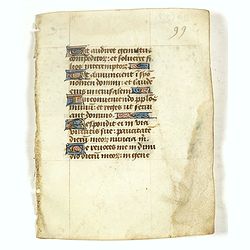 99
Ut audiret gemitus
compeditor: et solveret fi
lios interemptor:
Ut annuncient i spo
nomen domini: et laudē
eius in iherusalem
In conveniendo pplos
in unū: et reges ut servi
ant domino.
Respondit ei in via
virtutis sue: paucitatē
dierū meor nuncia m
Ne revoces me in dimi
dio dierū meor: in gene